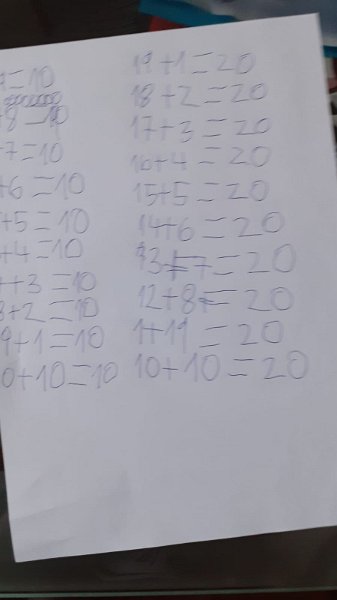 9=10
+8=10
+7=10
+6=10
+5=10
+4=10
+3=10
8+2=10
9+1=10
0+10=10
19+1=20
18+2=20
17+3=20
16+4=20
15+5=20
14+6=20
13+7=20
12+8=20
1+11=20
10+10=20